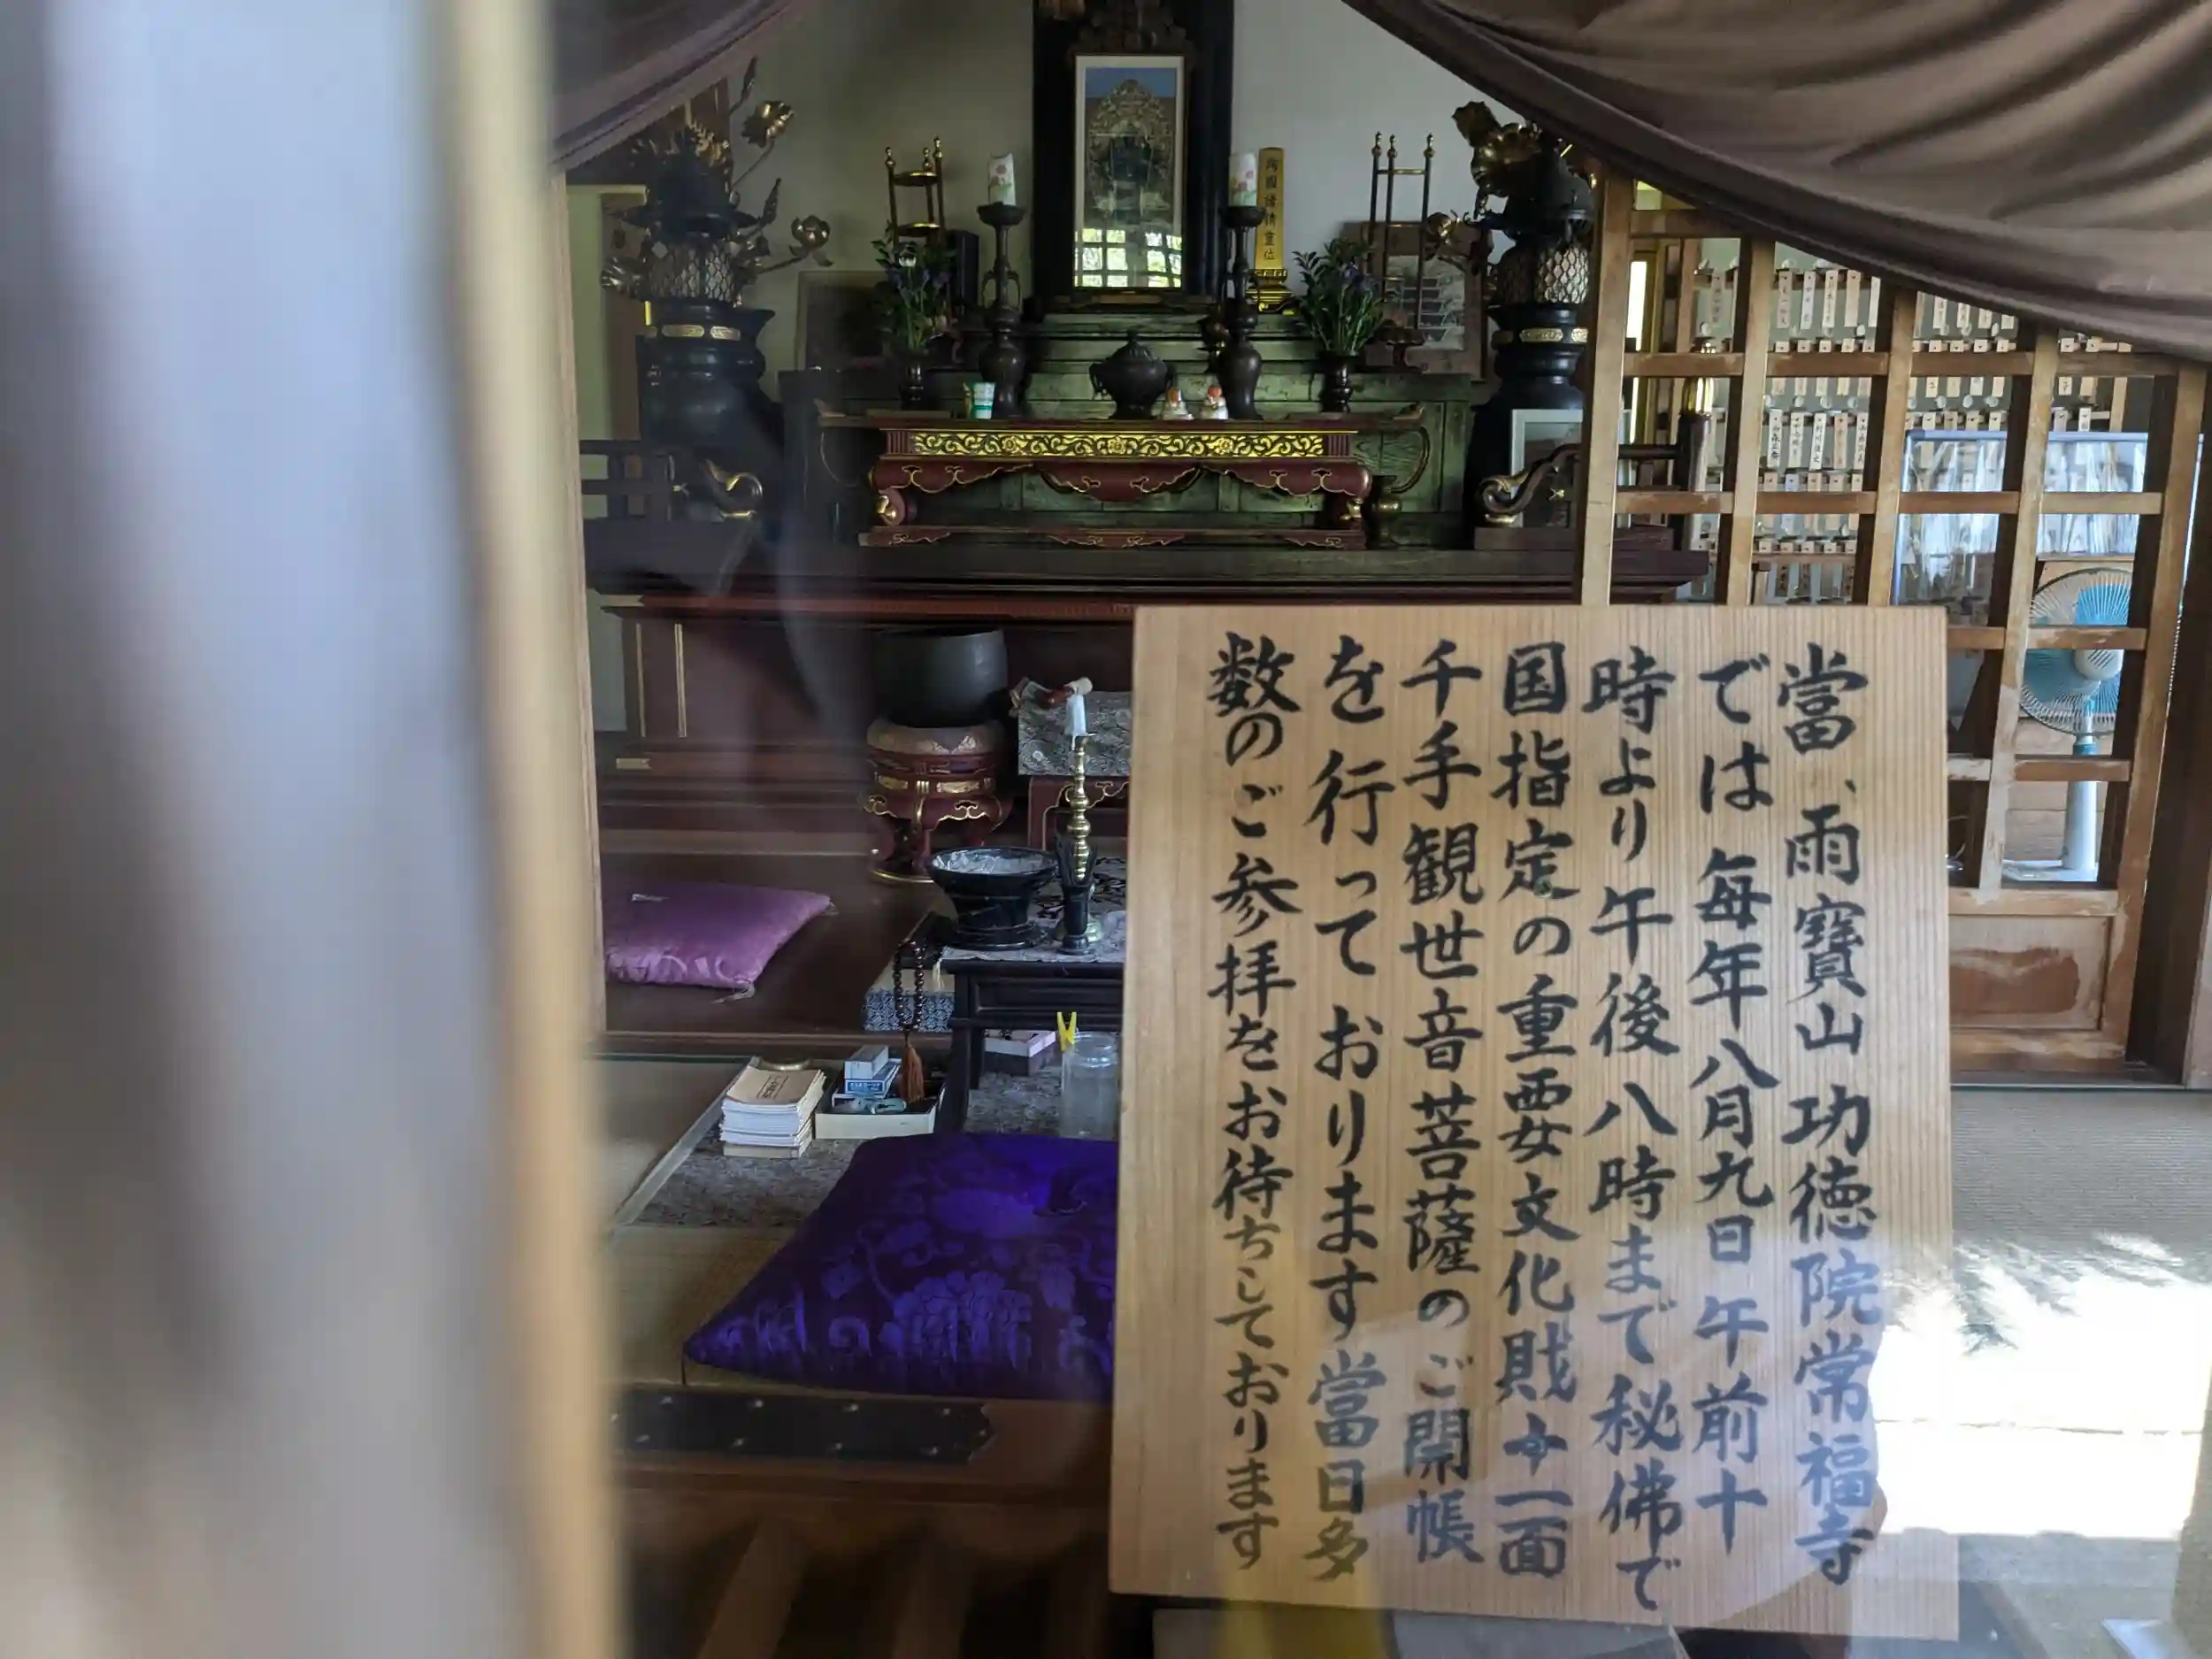 當、雨寶山功徳院常福寺
では毎年八月九日午前十
時より午後八時まで秘佛で
国指定の重要文化財十一面
千手観世音菩薩のご開帳
を行っております當日多
数のご参拝をお待ちしております